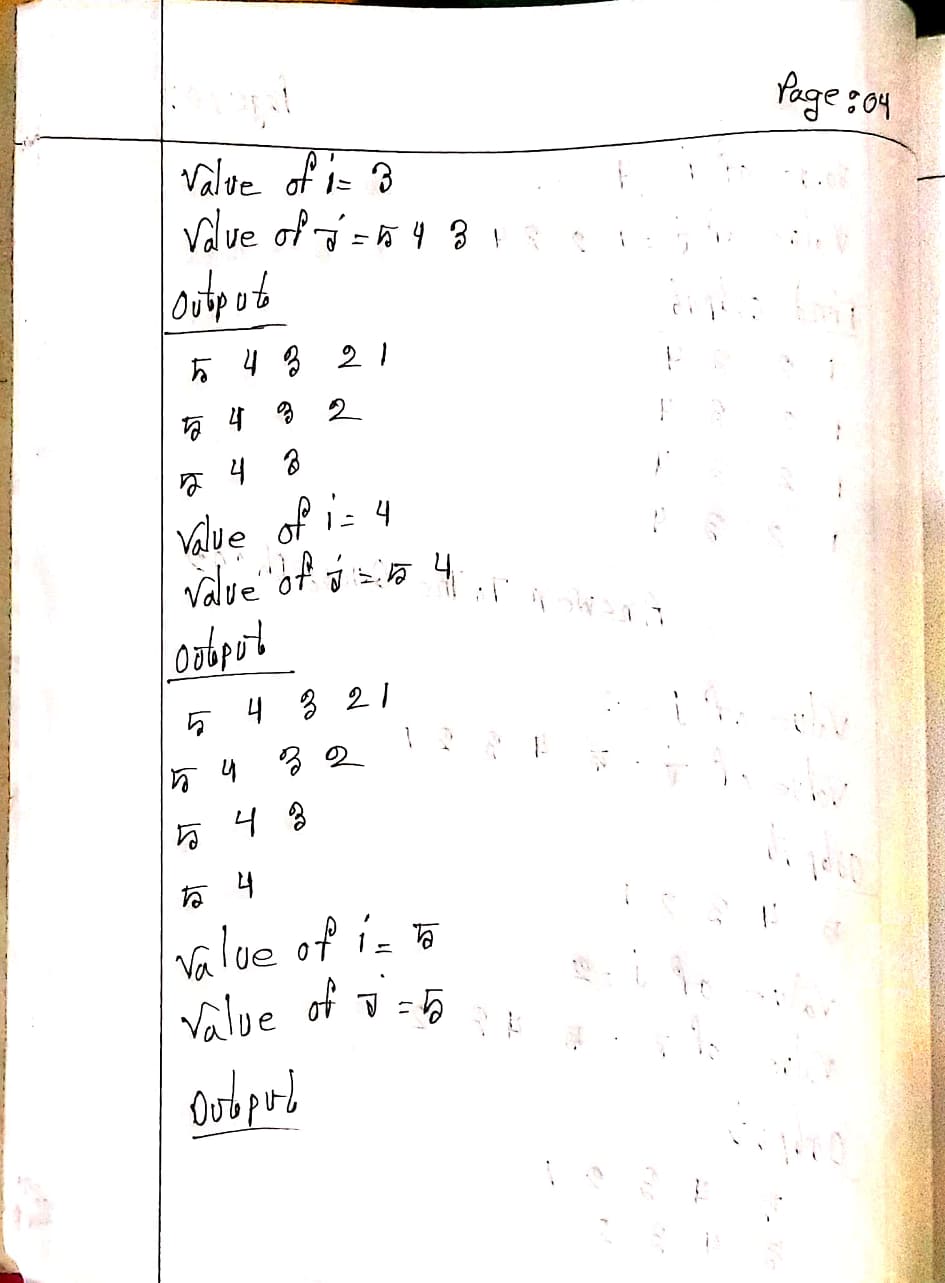 Page: 04
Value of i = 3
Value of j = 5 4 3
Output
5 4 3 2 1
5 4 3 2
5 4 3
Value of i = 4
Value of j = 5 4
Output
5 4 3 2 1
5 4 3 2
5 4 3
5 4
Value of i = 5
Value of j = 5
Output